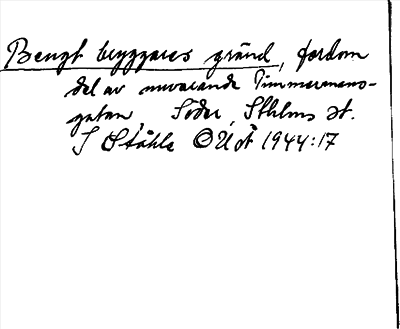 Bengt bryggares gränd, fordom
del av nuvarande Timmermans-
gatan, Söder, Sthlms st.
S Ståhle OUÄ 1944:17